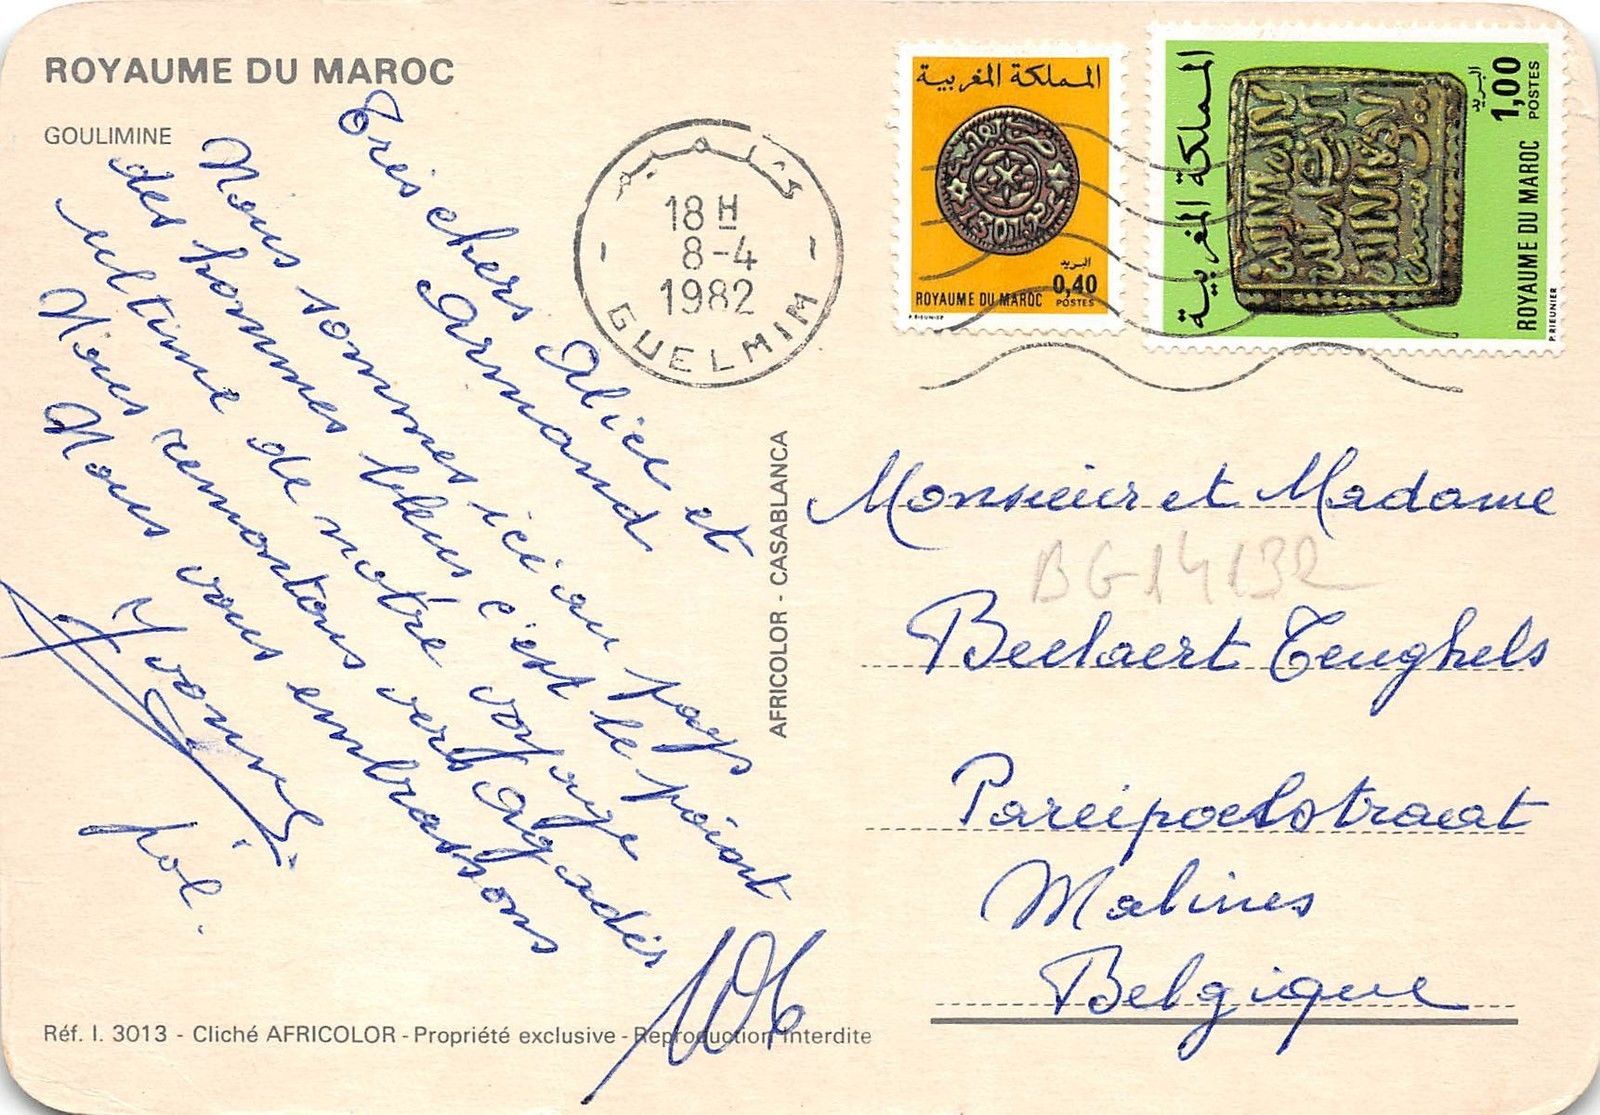 ROYAUME DU MAROC
GOULIMINE
Très chers Alice et
Armand
Nous sommes ici au pays
des hommes bleus c'est le point
ultime de notre voyage
Nous remontons vers Agadès
Nous vous embrassons
Yvonne
Pol.
كلميم
18 H
8-4
1982
GUELMIM
المملكة المغربية
البريد
0,40
ROYAUME DU MAROC POSTES
P. RIEUNIER
المملكة المغربية
البريد
1,00
POSTES
ROYAUME DU MAROC
P. RIEUNIER
AFRICOLOR - CASABLANCA
Monsieur et Madame
BG14132
Beelaert Teughels
Pareipoelstraat
Malines
Belgique
106
Réf. I. 3013 - Cliché AFRICOLOR - Propriété exclusive - Reproduction interdite